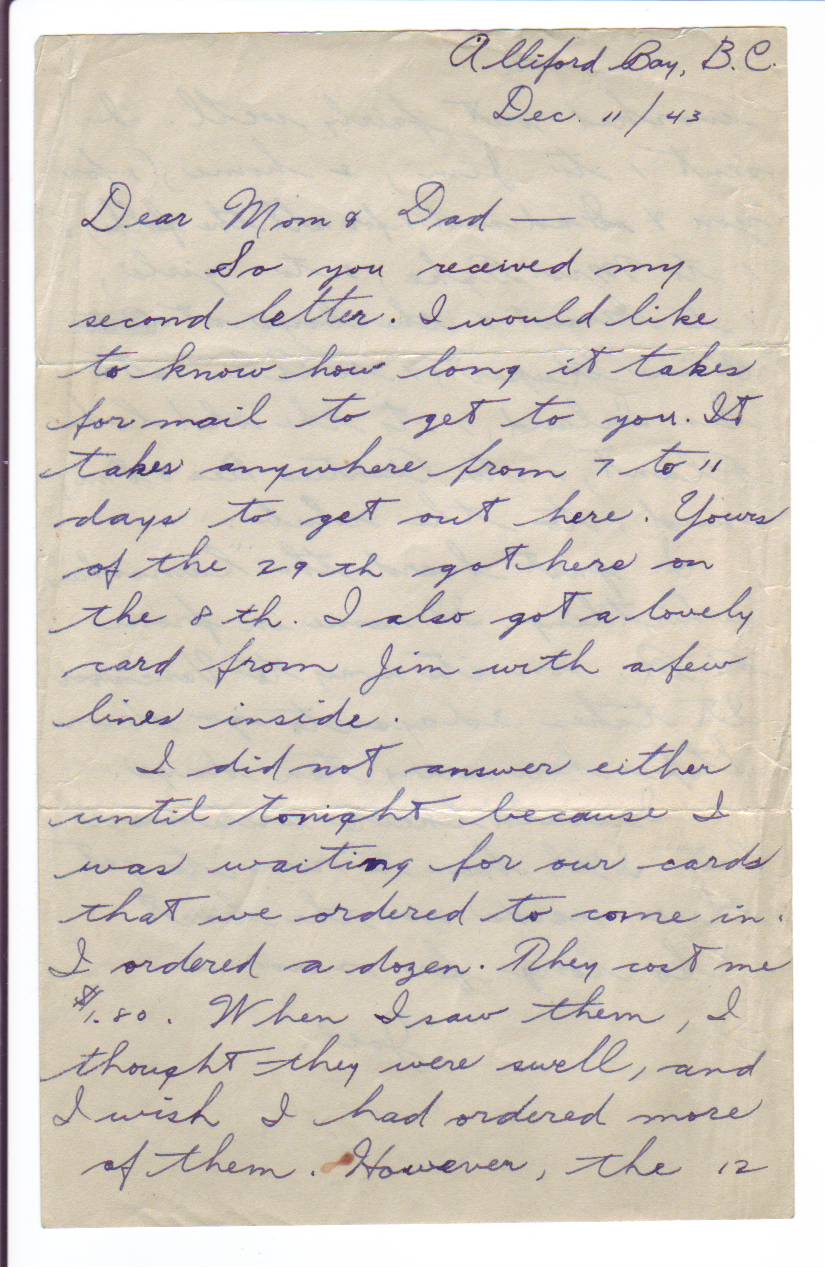 Alliford Bay, B.C.
Dec. 11/43
Dear Mom & Dad —
So you received my
second letter. I would like
to know how long it takes
for mail to get to you. It
takes anywhere from 7 to 11
days to get out here. Yours
of the 29 th got here on
the 8 th. I also got a lovely
card from Jim with a few
lines inside.
I did not answer either
until tonight because I
was waiting for our cards
that we ordered to come in.
I ordered a dozen. They cost me
$1.80. When I saw them, I
thought they were swell, and
I wish I had ordered more
of them. However, the 12